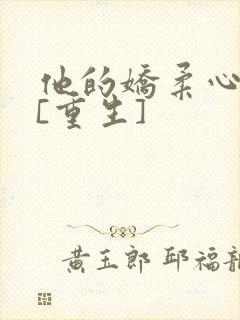 他的嬌柔心
[重生]
黃玉郎 邱福龍